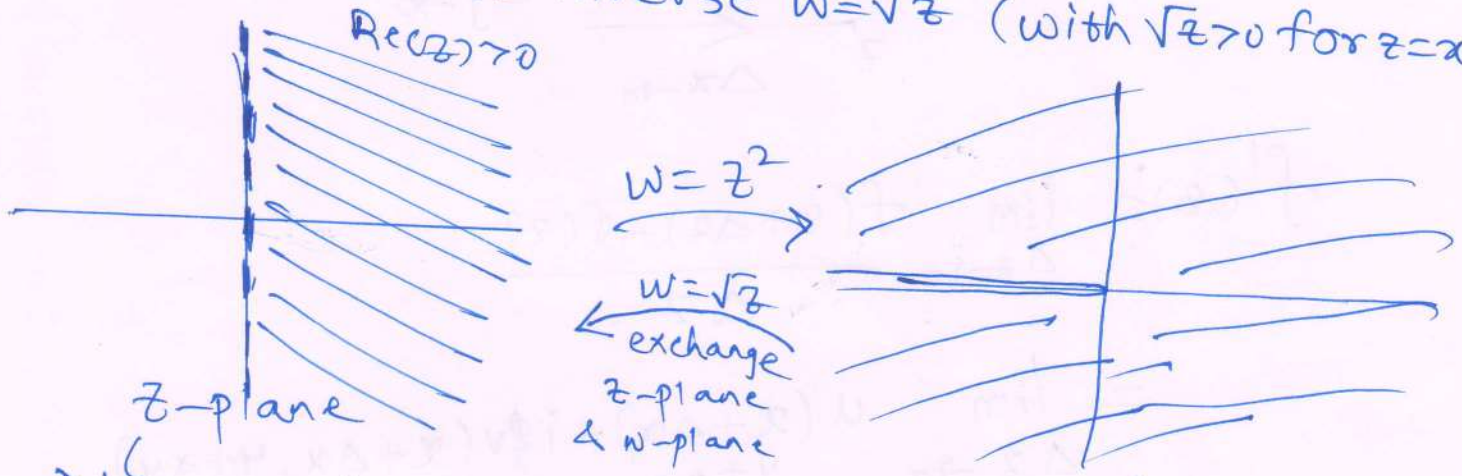 w=√z (with √z>0 for z=x
Re(z)>0
w=z²
w=√z
exchange
z-plane
& w-plane
z-plane